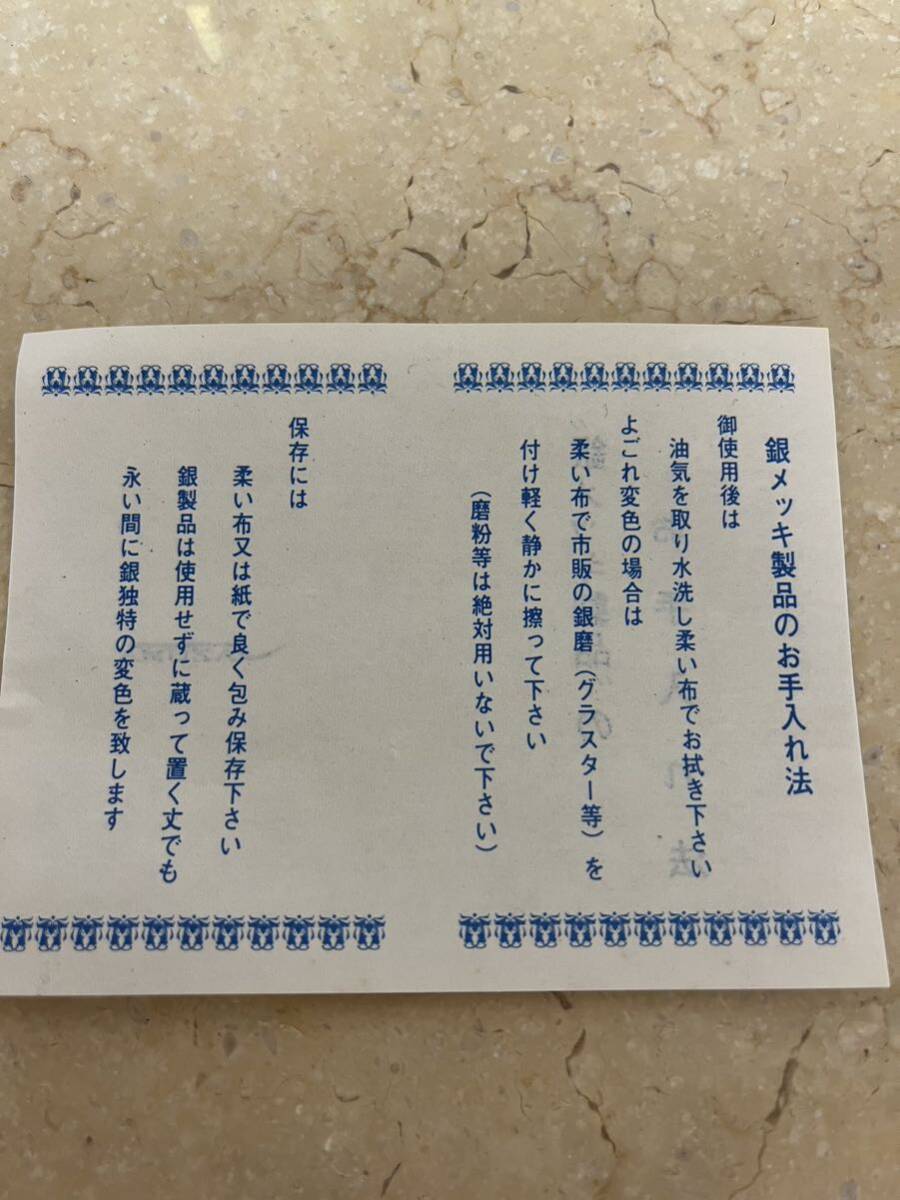 銀メッキ製品のお手入れ法
御使用後は
油気を取り水洗し柔い布でお拭き下さい
よごれ変色の場合は
柔い布で市販の銀磨(グラスター等)を
付け軽く静かに擦って下さい
(磨粉等は絶対用いないで下さい)
保存には
柔い布又は紙で良く包み保存下さい
銀製品は使用せずに蔵って置く丈でも
永い間に銀独特の変色を致します